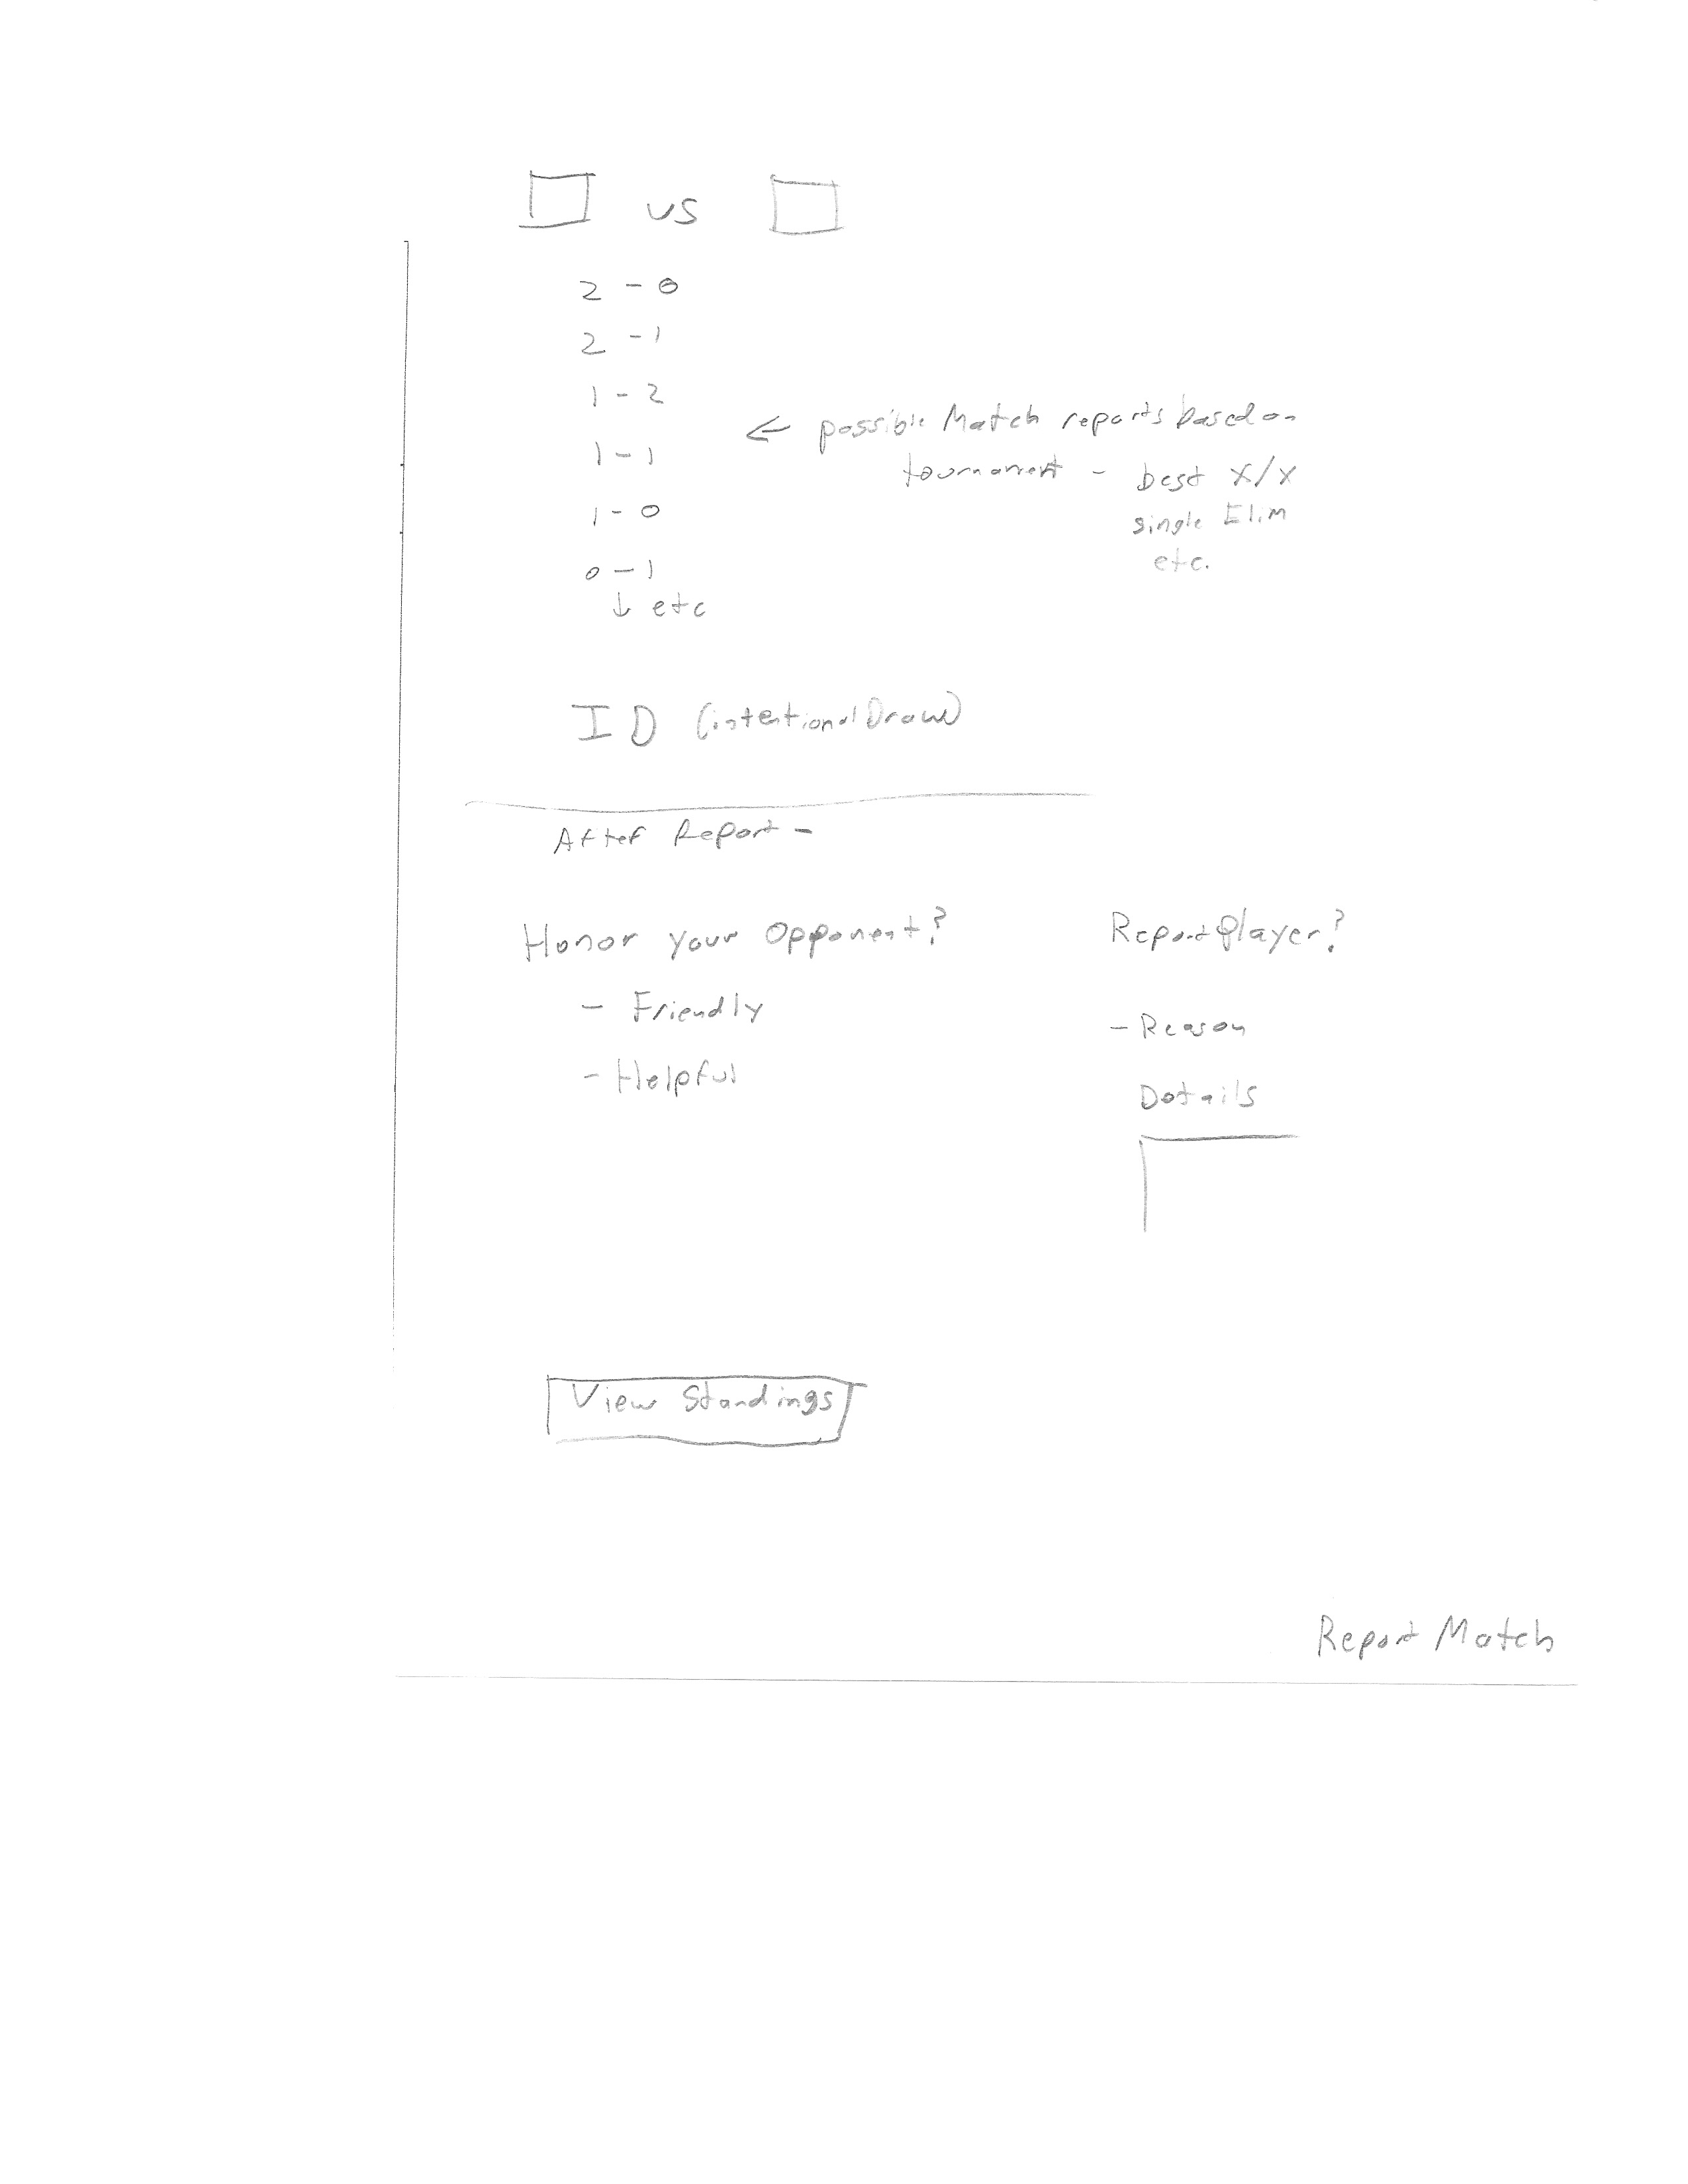 vs
2 - 0
2 - 1
1 - 2
1 - 1
1 - 0
0 - 1
↓ etc
← possible Match reports based on
tournament - best x/x
single Elim
etc.
ID (intentional Draw)
After Report -
Honor your Opponent?
- Friendly
- Helpful
Report Player?
- Reason
Details
View Standings
Report Match